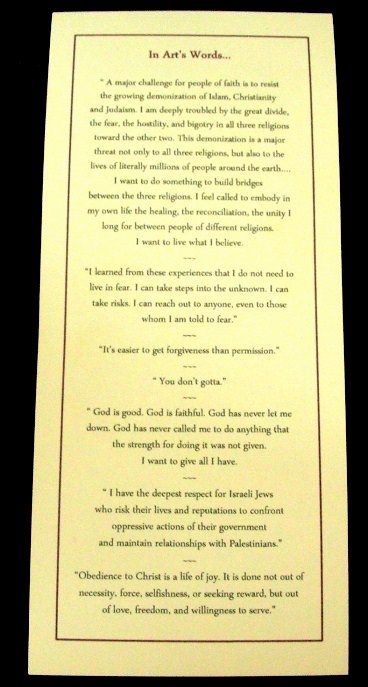 In Art's Words...
" A major challenge for people of faith is to resist
the growing demonization of Islam, Christianity
and Judaism. I am deeply troubled by the great divide,
the fear, the hostility, and bigotry in all three religions
toward the other two. This demonization is a major
threat not only to all three religions, but also to the
lives of literally millions of people around the earth....
I want to do something to build bridges
between the three religions. I feel called to embody in
my own life the healing, the reconciliation, the unity I
long for between people of different religions.
I want to live what I believe.
~~~
"I learned from these experiences that I do not need to
live in fear. I can take steps into the unknown. I can
take risks. I can reach out to anyone, even to those
whom I am told to fear."
~~~
"It's easier to get forgiveness than permission."
~~~
" You don't gotta."
~~~
" God is good. God is faithful. God has never let me
down. God has never called me to do anything that
the strength for doing it was not given.
I want to give all I have.
~~~
" I have the deepest respect for Israeli Jews
who risk their lives and reputations to confront
oppressive actions of their government
and maintain relationships with Palestinians."
~~~
"Obedience to Christ is a life of joy. It is done not out of
necessity, force, selfishness, or seeking reward, but out
of love, freedom, and willingness to serve."